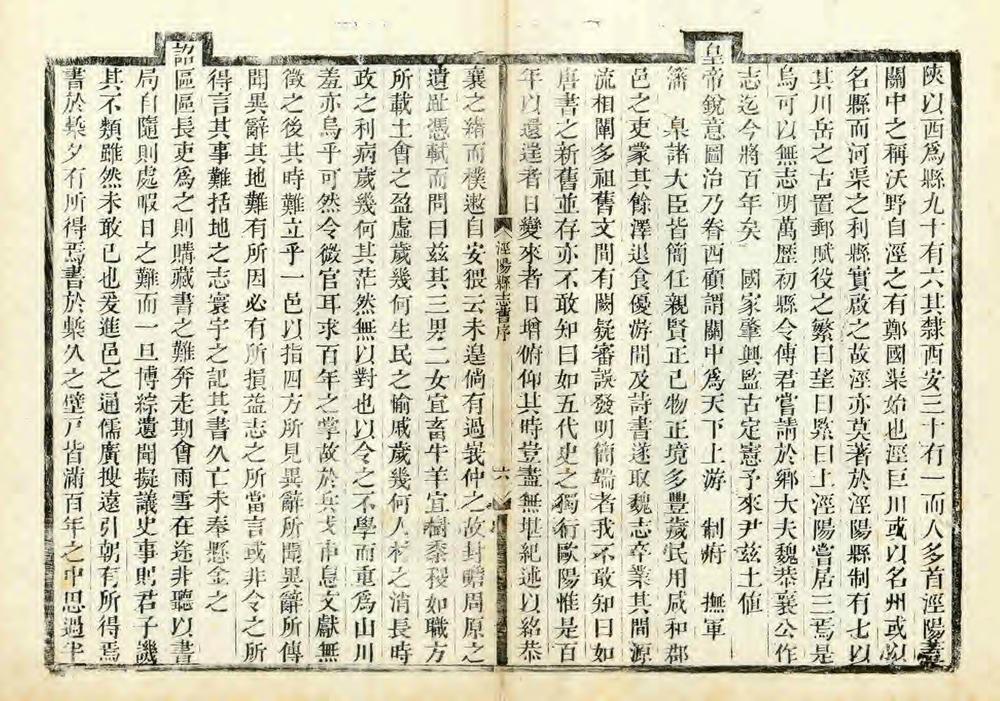 陝以西爲縣九十有六其隸西安三十有一而人多首涇陽蓋
關中之稱沃野自涇之有鄭國渠始也涇巨川或以名州或以
名縣而河渠之利縣實啟之故涇亦莫著於涇陽縣制有七以
其川岳之古置郵賦役之繁曰望曰緊曰上涇陽嘗居三焉是
烏可以無志明萬歷初縣令傅君嘗請於鄉大夫魏恭襄公作
志迄今將百年矣 國家肇興監古定憲予來尹茲土値
皇帝銳意圖治乃眷西顧謂關中爲天下上游 制府 撫軍
藩 臬諸大臣皆簡任親賢正己物正境多豐歲民用咸和郡
邑之吏蒙其餘澤退食優游間及詩書遂取魏志卒業其間源
流相闡多祖舊文間有闕疑審誤發明簡端者我不敢知曰如
唐書之新舊並存亦不敢知曰如五代史之獨行歐陽惟是百
年以還逹者日變來者日增俯仰其時豈盡無堪紀述以紹恭
涇陽縣志舊序
六
襄之緖而樸遬自安猥云未遑倘有過峩仲之故封瞻周原之
遺趾憑軾而問曰茲其三男二女宜畜牛羊宜樹黍稷如職方
所載土會之盈虛歲幾何生民之愉戚歲幾何人材之消長時
政之利病歲幾何其茫然無以對也以令之不學而重爲山川
羞亦烏乎可然令微官耳求百年之掌故於兵戈甫息文獻無
徵之後其時難立乎一邑以指四方所見異辭所聞異辭所傳
聞異辭其地難有所因必有所損益志之所當言或非令之所
得言其事難括地之志寰宇之記其書久亡未奉懸金之
詔區區長吏爲之則購藏書之難奔走期會雨雪在途非聽以書
局自隨則處暇日之難而一旦博綜遺聞擬議史事貽君子譏
其不類雖然未敢已也爰進邑之通儒廣搜遠引朝有所得焉
書於槧夕有所得焉書於槧久之壁戸皆滿百年之中思過半